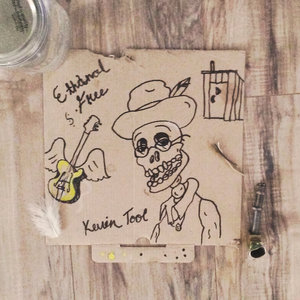 Ethanol
Free
Kevin Tool